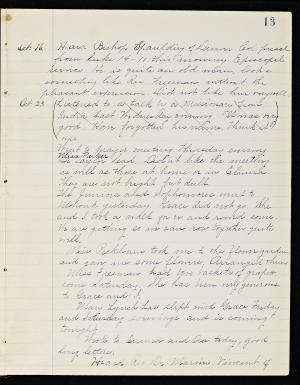 13
Oct. 16 Heard Bishop Spaulding of Denver Col. preach
from Luke 14-10 this morning Episcopal
service. He is quite an old man, looks
something like Mr Freeman without the
pleasant expression. Did not like him very well
Oct 23 Listened to a talk by a Missionary from
India last Wednesday evening. It was very
good. Have forgotten his name. Think it
was
Went to prayer meeting Thursday evening
Miss Parker
lead. Did not like the meeting
as well as those at home or in
They are not
The Juniors and Sophomores went to
Mohonk yesterday. Grace did not go. She
and I took a walk
We are getting so we can row together quite
well.
Miss Peckham took me to the flower garden
and gave me some flowers. Arranged them
Miss Freeman had ten baskets of grapes
come Saturday. She has been very generous
to Grace and I.
Mary Lynch has slept with Grace Friday
and Saturday evenings and is coming
tonight.
Wrote to and today, good
long letters.
Heard Rev. Dr. Marvin Vincent of